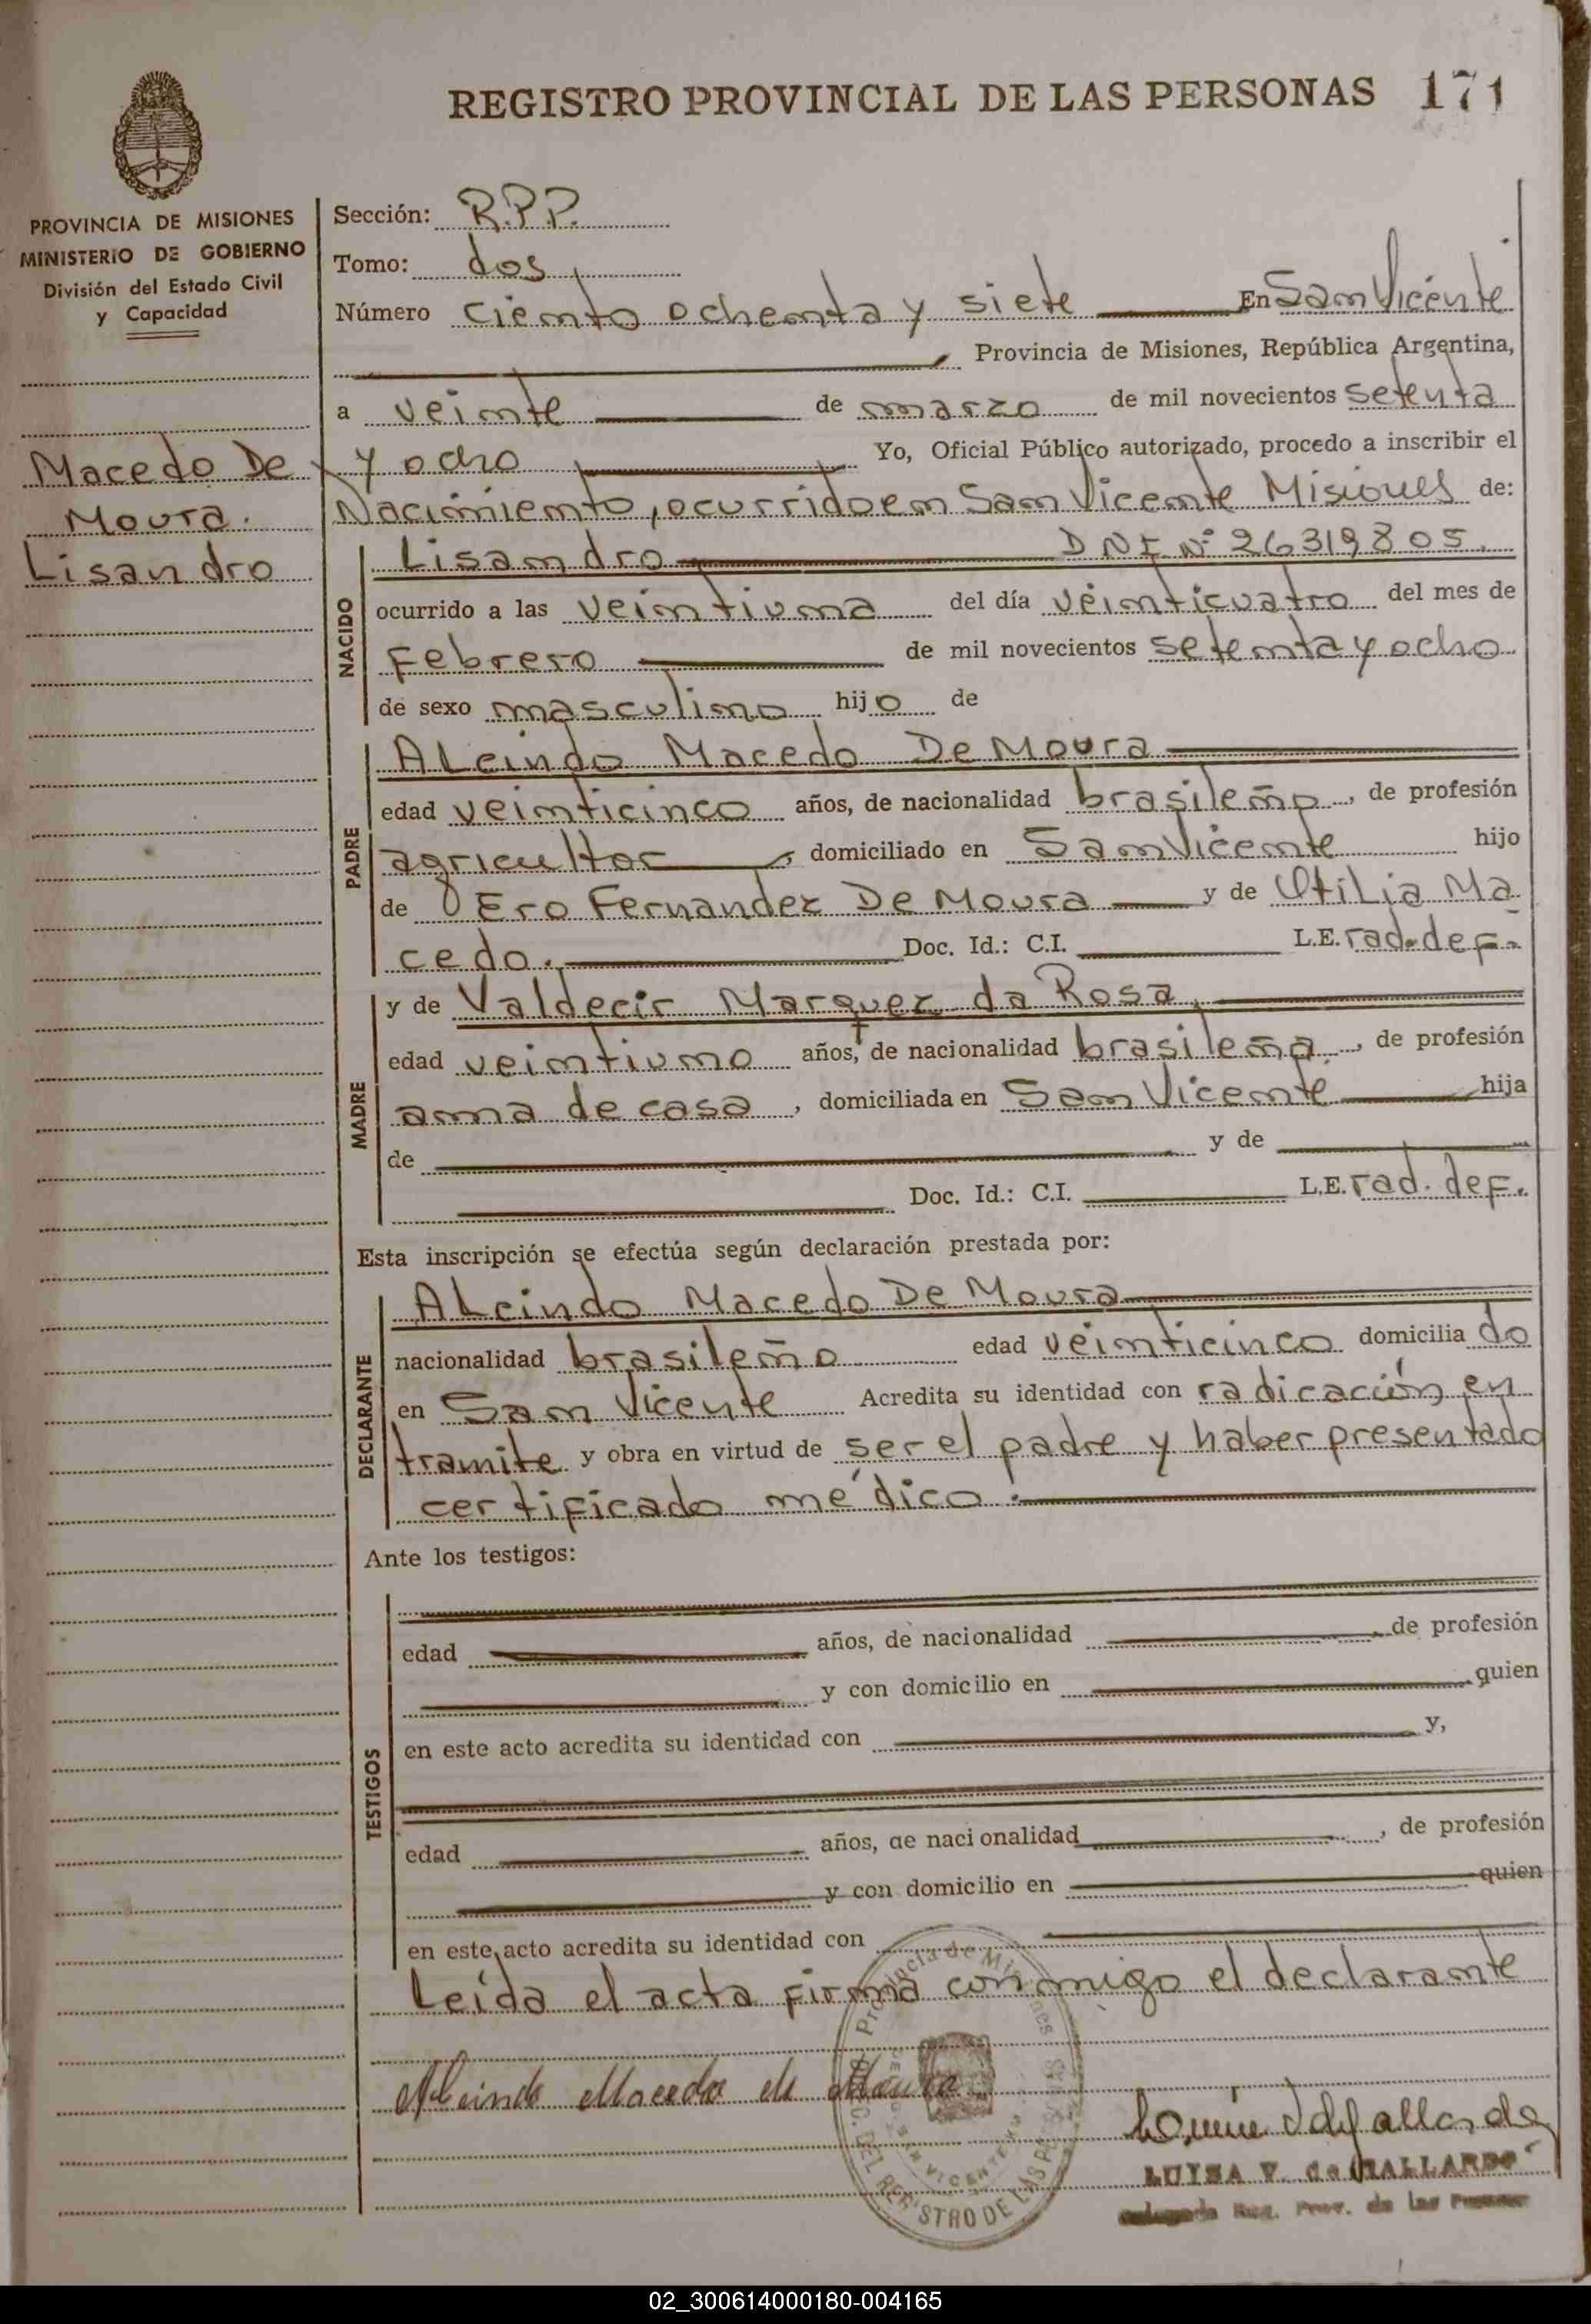 REGISTRO PROVINCIAL DE LAS PERSONAS 171
PROVINCIA DE MISIONES
MINISTERIO DE GOBIERNO
División del Estado Civil
y Capacidad
Macedo De
Moura.
Lisandro
Sección: R.P.P.
Tomo: dos
Número ciento ochenta y siete En San Vicente
Provincia de Misiones, República Argentina,
a veinte de marzo de mil novecientos setenta
y ocho Yo, Oficial Público autorizado, procedo a inscribir el
Nacimiento, ocurrido en San Vicente Misiones de:
NACIDO
Lisandro DNI Nº 26319805.
ocurrido a las veintiuna del día veinticuatro del mes de
Febrero de mil novecientos setenta y ocho
de sexo masculino hijo de
PADRE
ALcindo Macedo De Moura
edad veinticinco años, de nacionalidad brasileño, de profesión
agricultor, domiciliado en San Vicente hijo
de Ero Fernandez De Moura y de Otilia Ma
cedo. Doc. Id.: C.I. L.E. rad. def.
MADRE
y de Valdecir Marquez da Rosa,
edad veintiuno años, de nacionalidad brasileña, de profesión
ama de casa, domiciliada en San Vicente hija
de y de
Doc. Id.: C.I. L.E. rad. def.
Esta inscripción se efectúa según declaración prestada por:
DECLARANTE
ALcindo Macedo De Moura
nacionalidad brasileño edad veinticinco domicilia do
en San Vicente Acredita su identidad con radicación en
tramite y obra en virtud de ser el padre y haber presentado
certificado médico.
Ante los testigos:
TESTIGOS
edad años, de nacionalidad de profesión
y con domicilio en quien
en este acto acredita su identidad con y,
edad años, de nacionalidad, de profesión
y con domicilio en quien
en este acto acredita su identidad con
Leída el acta firma conmigo el declarante
Alcindo Macedo de Moura
Provincia de Misiones
SAN VICENTE
DEL REGISTRO DE LAS PERSONAS
LUISA V. de GALLARDO
Delegada Reg. Prov. de las Personas
02_300614000180-004165